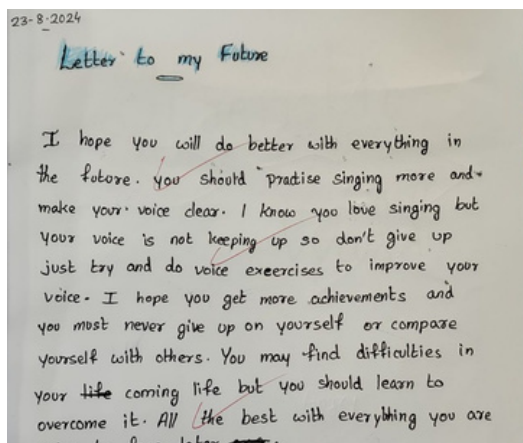 23-8-2024
Letter to my Future
I hope you will do better with everything in
the future. you should practise singing more and
make your voice clear. I know you love singing but
your voice is not keeping up so don't give up
just try and do voice exeercises to improve your
voice. I hope you get more achievements and
you must never give up on yourself or compare
yourself with others. You may find difficulties in
your life coming life but you should learn to
overcome it. All the best with everything you are